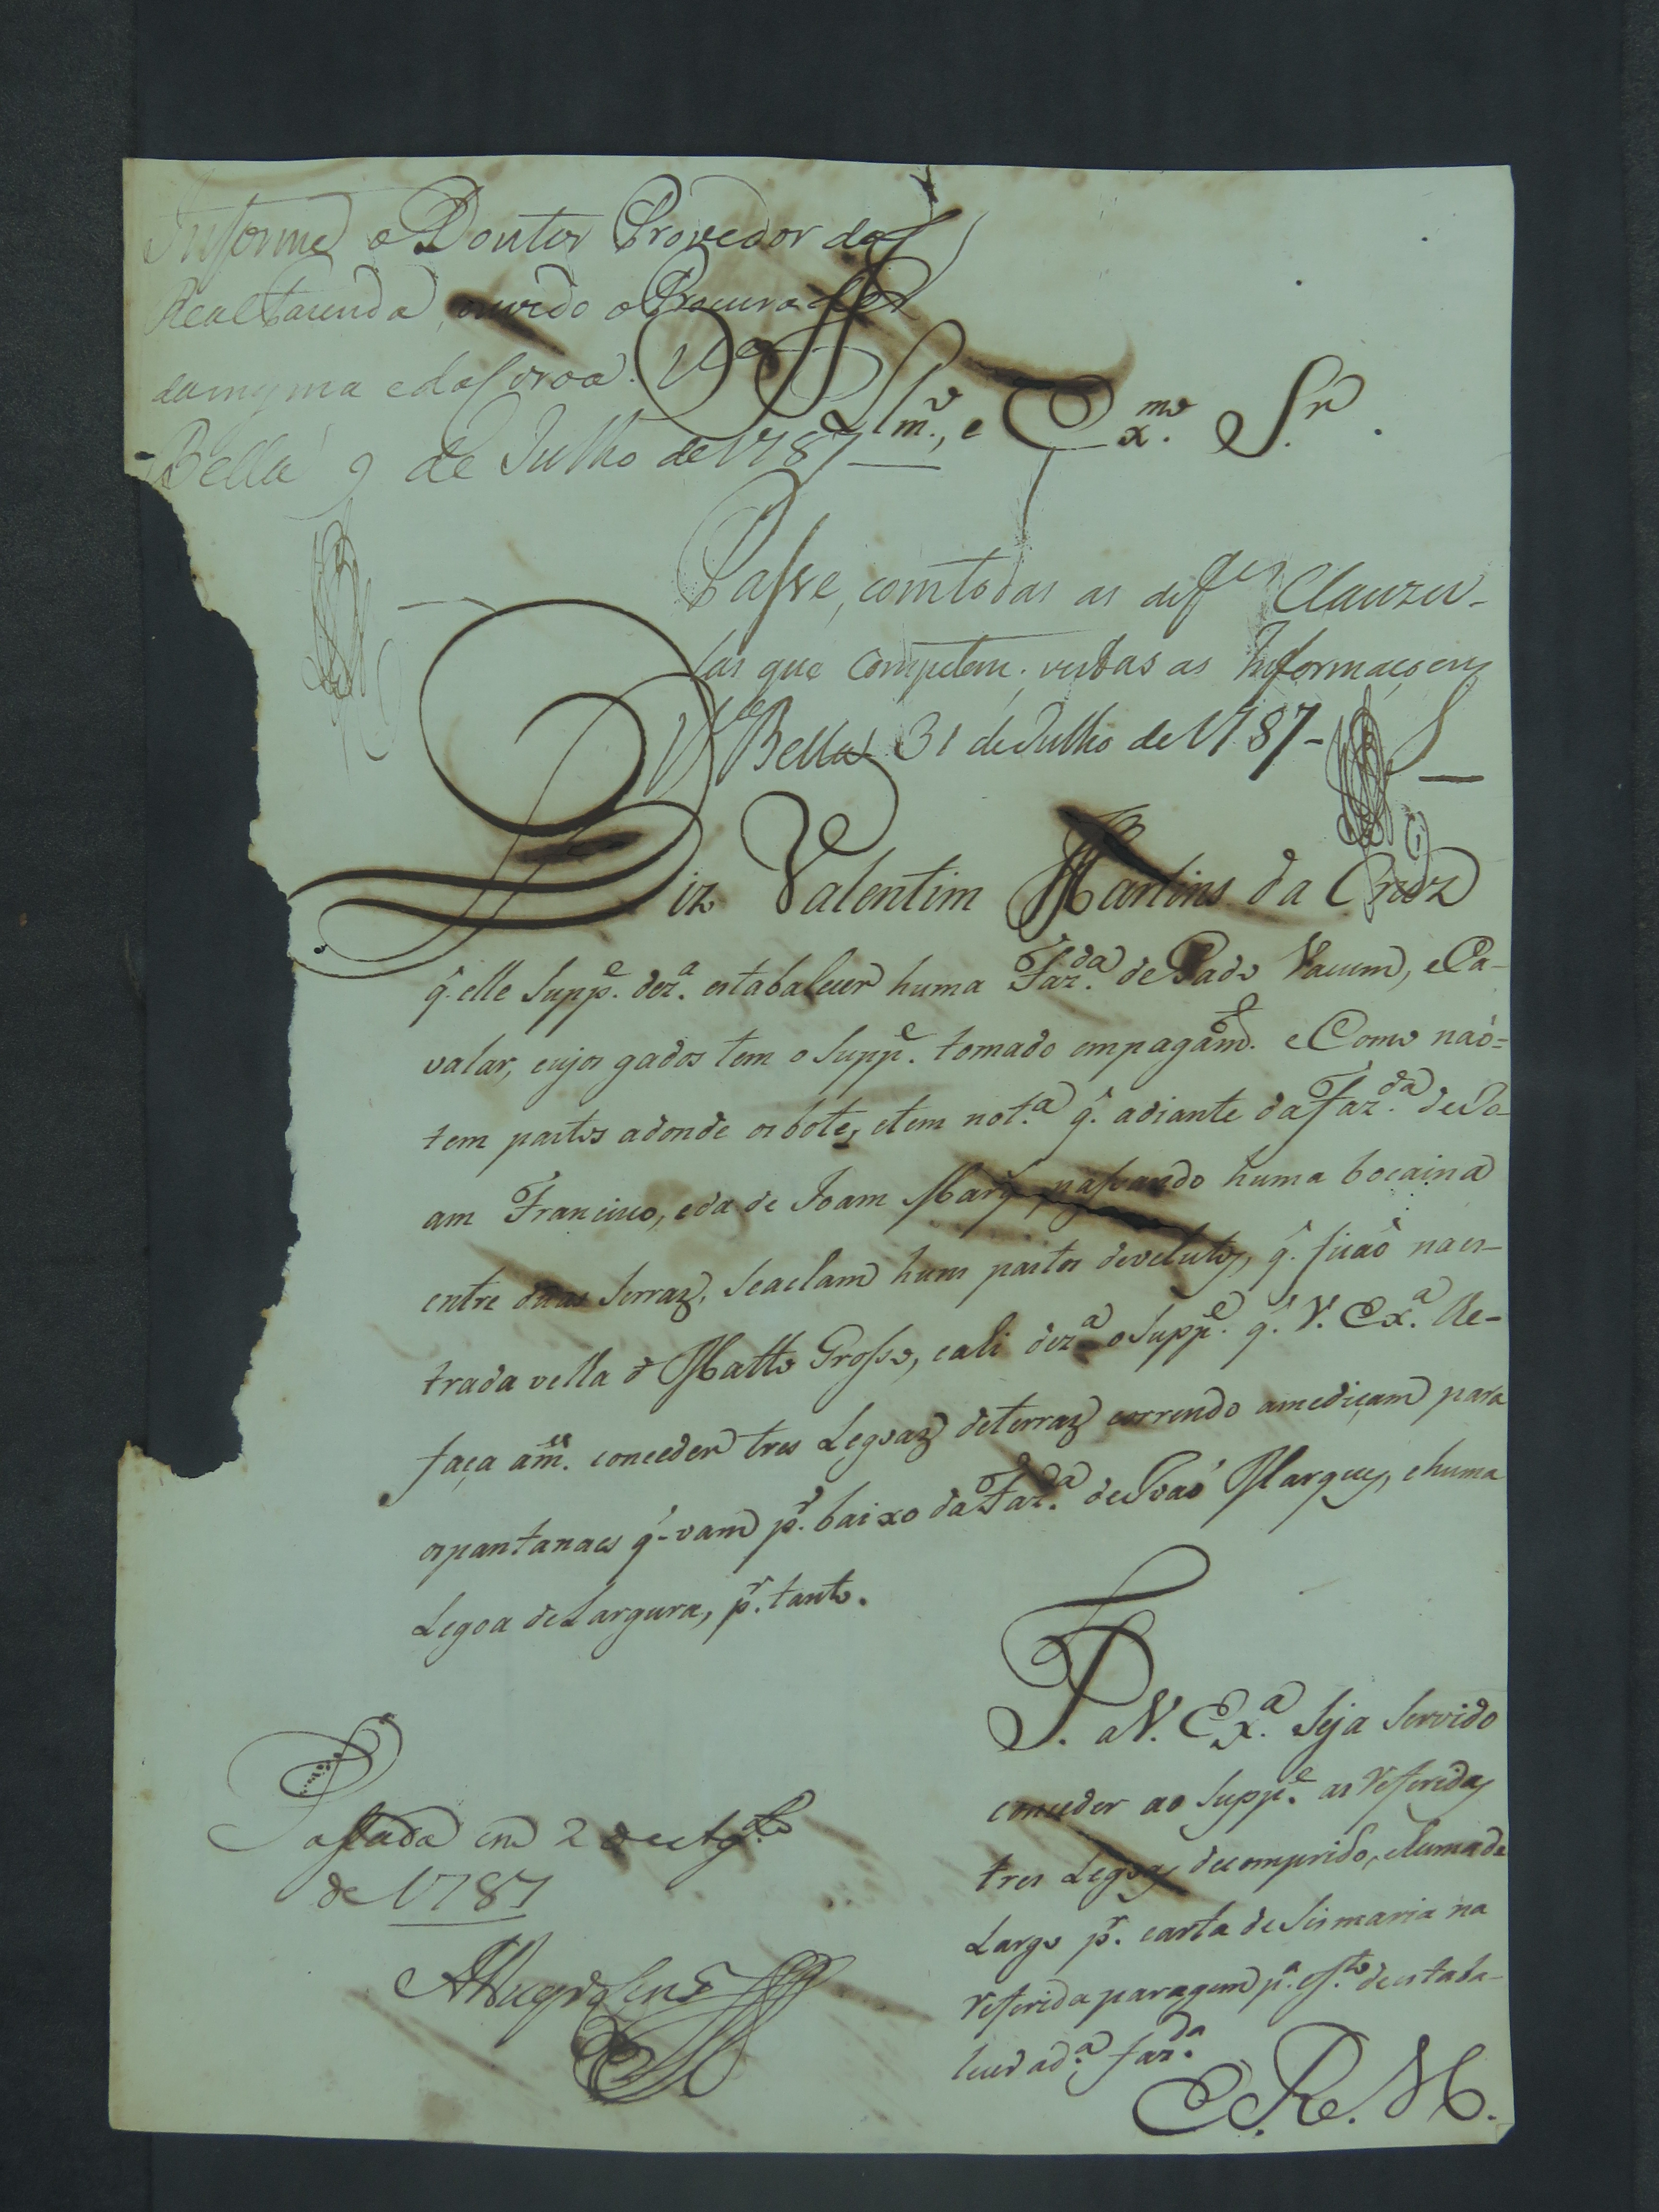 Informe o Doutor Provedor da
Real Fazenda, ouvido o Procurador
da mesma e da Coroa. V.ª
Bella 9 de Julho de 1787
Ill.mo, e Ex.mo S.r
Passe, com todas as Clauzu-
las que competem, vistas as Informaçoens
V.ª Bella 31 de Julho de 1787-
Diz Valentim Martins da Cruz
q. elle Supp.e dez.a estabalecer huma Faz.da de Gado Vacum, e Ca-
valar, cujos gados tem o Supp.e tomado em pagam.to e Como naõ=
tem pastos adonde os bote, e tem not.a q. adiante da Faz.da de Jo-
am Francisco, e da de Joam Marq.s, passando huma bocaina
entre duas Serraz, Se aclam huns pastos devolutos, q. ficaõ na es-
trada vella d Matto Grosso, e ali dez.a o Supp.e q. V. Ex.a lhe-
faça a m.ce conceder tres Legoaz de terraz correndo a mediçam para
os pantanaes q- vam p.r baixo da Faz.da de Joaõ Marques, e huma
Legoa de Largura, p.r tanto.
P. a V. Ex.a Seja Servido
conceder ao Supp.e as Referidas
tres Legoas de comprido, e huma de
Largo p.r carta de Sismaria na
Referida paragem p.a ef.to de estaba-
lecer a d.a faz.da
E. R. M.
Passada em 2 de
de 1787